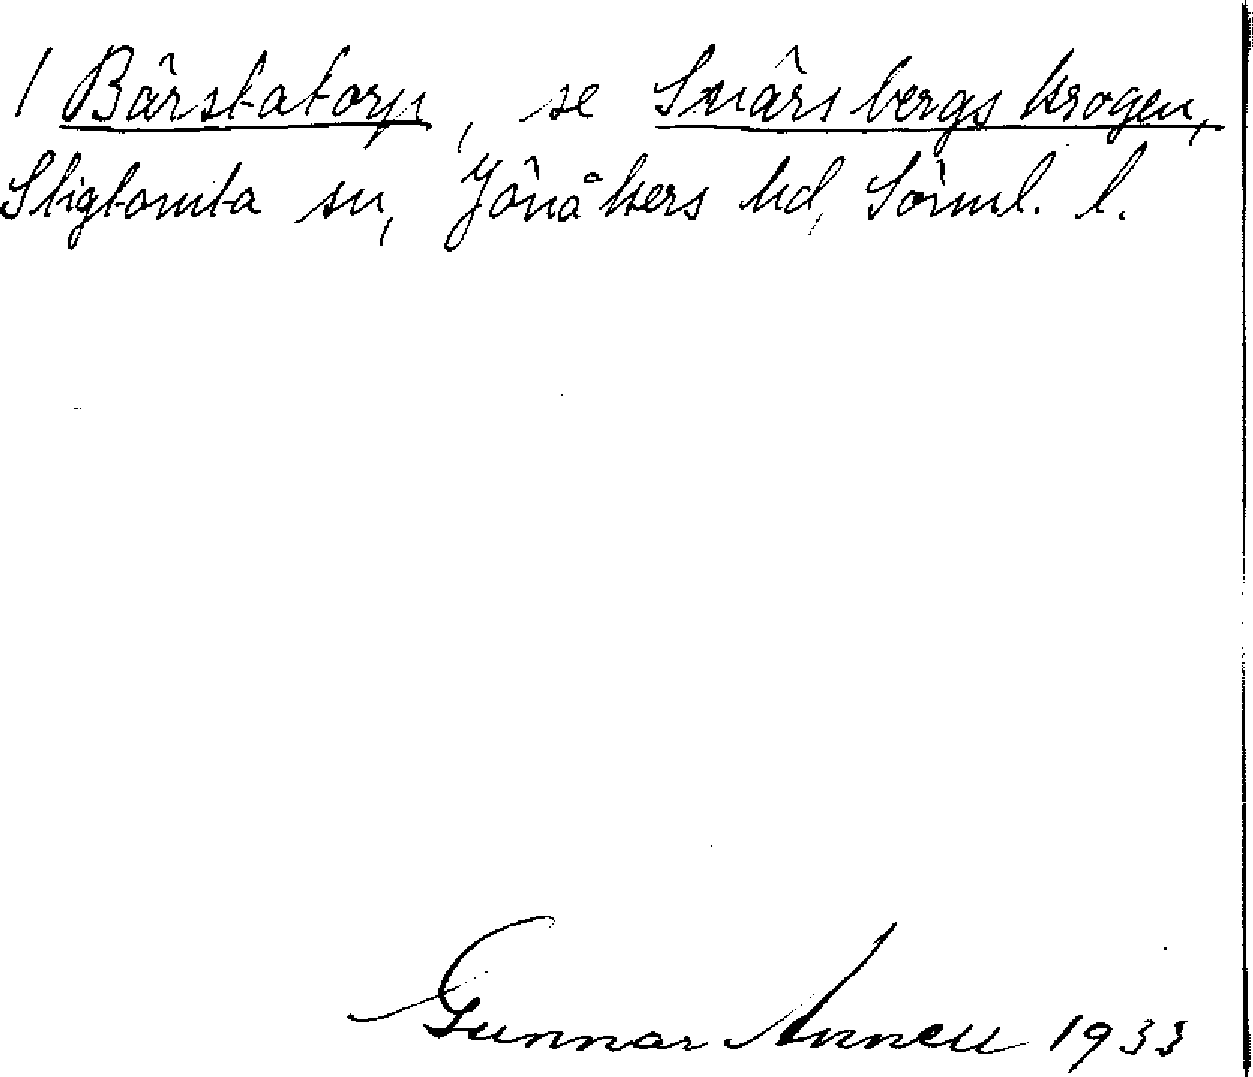 / Bärstatorp, se Snärsbergskrogen,
Stigtomta sn, Jönåkers hd, Sörml. l.
Gunnar Annell 1933